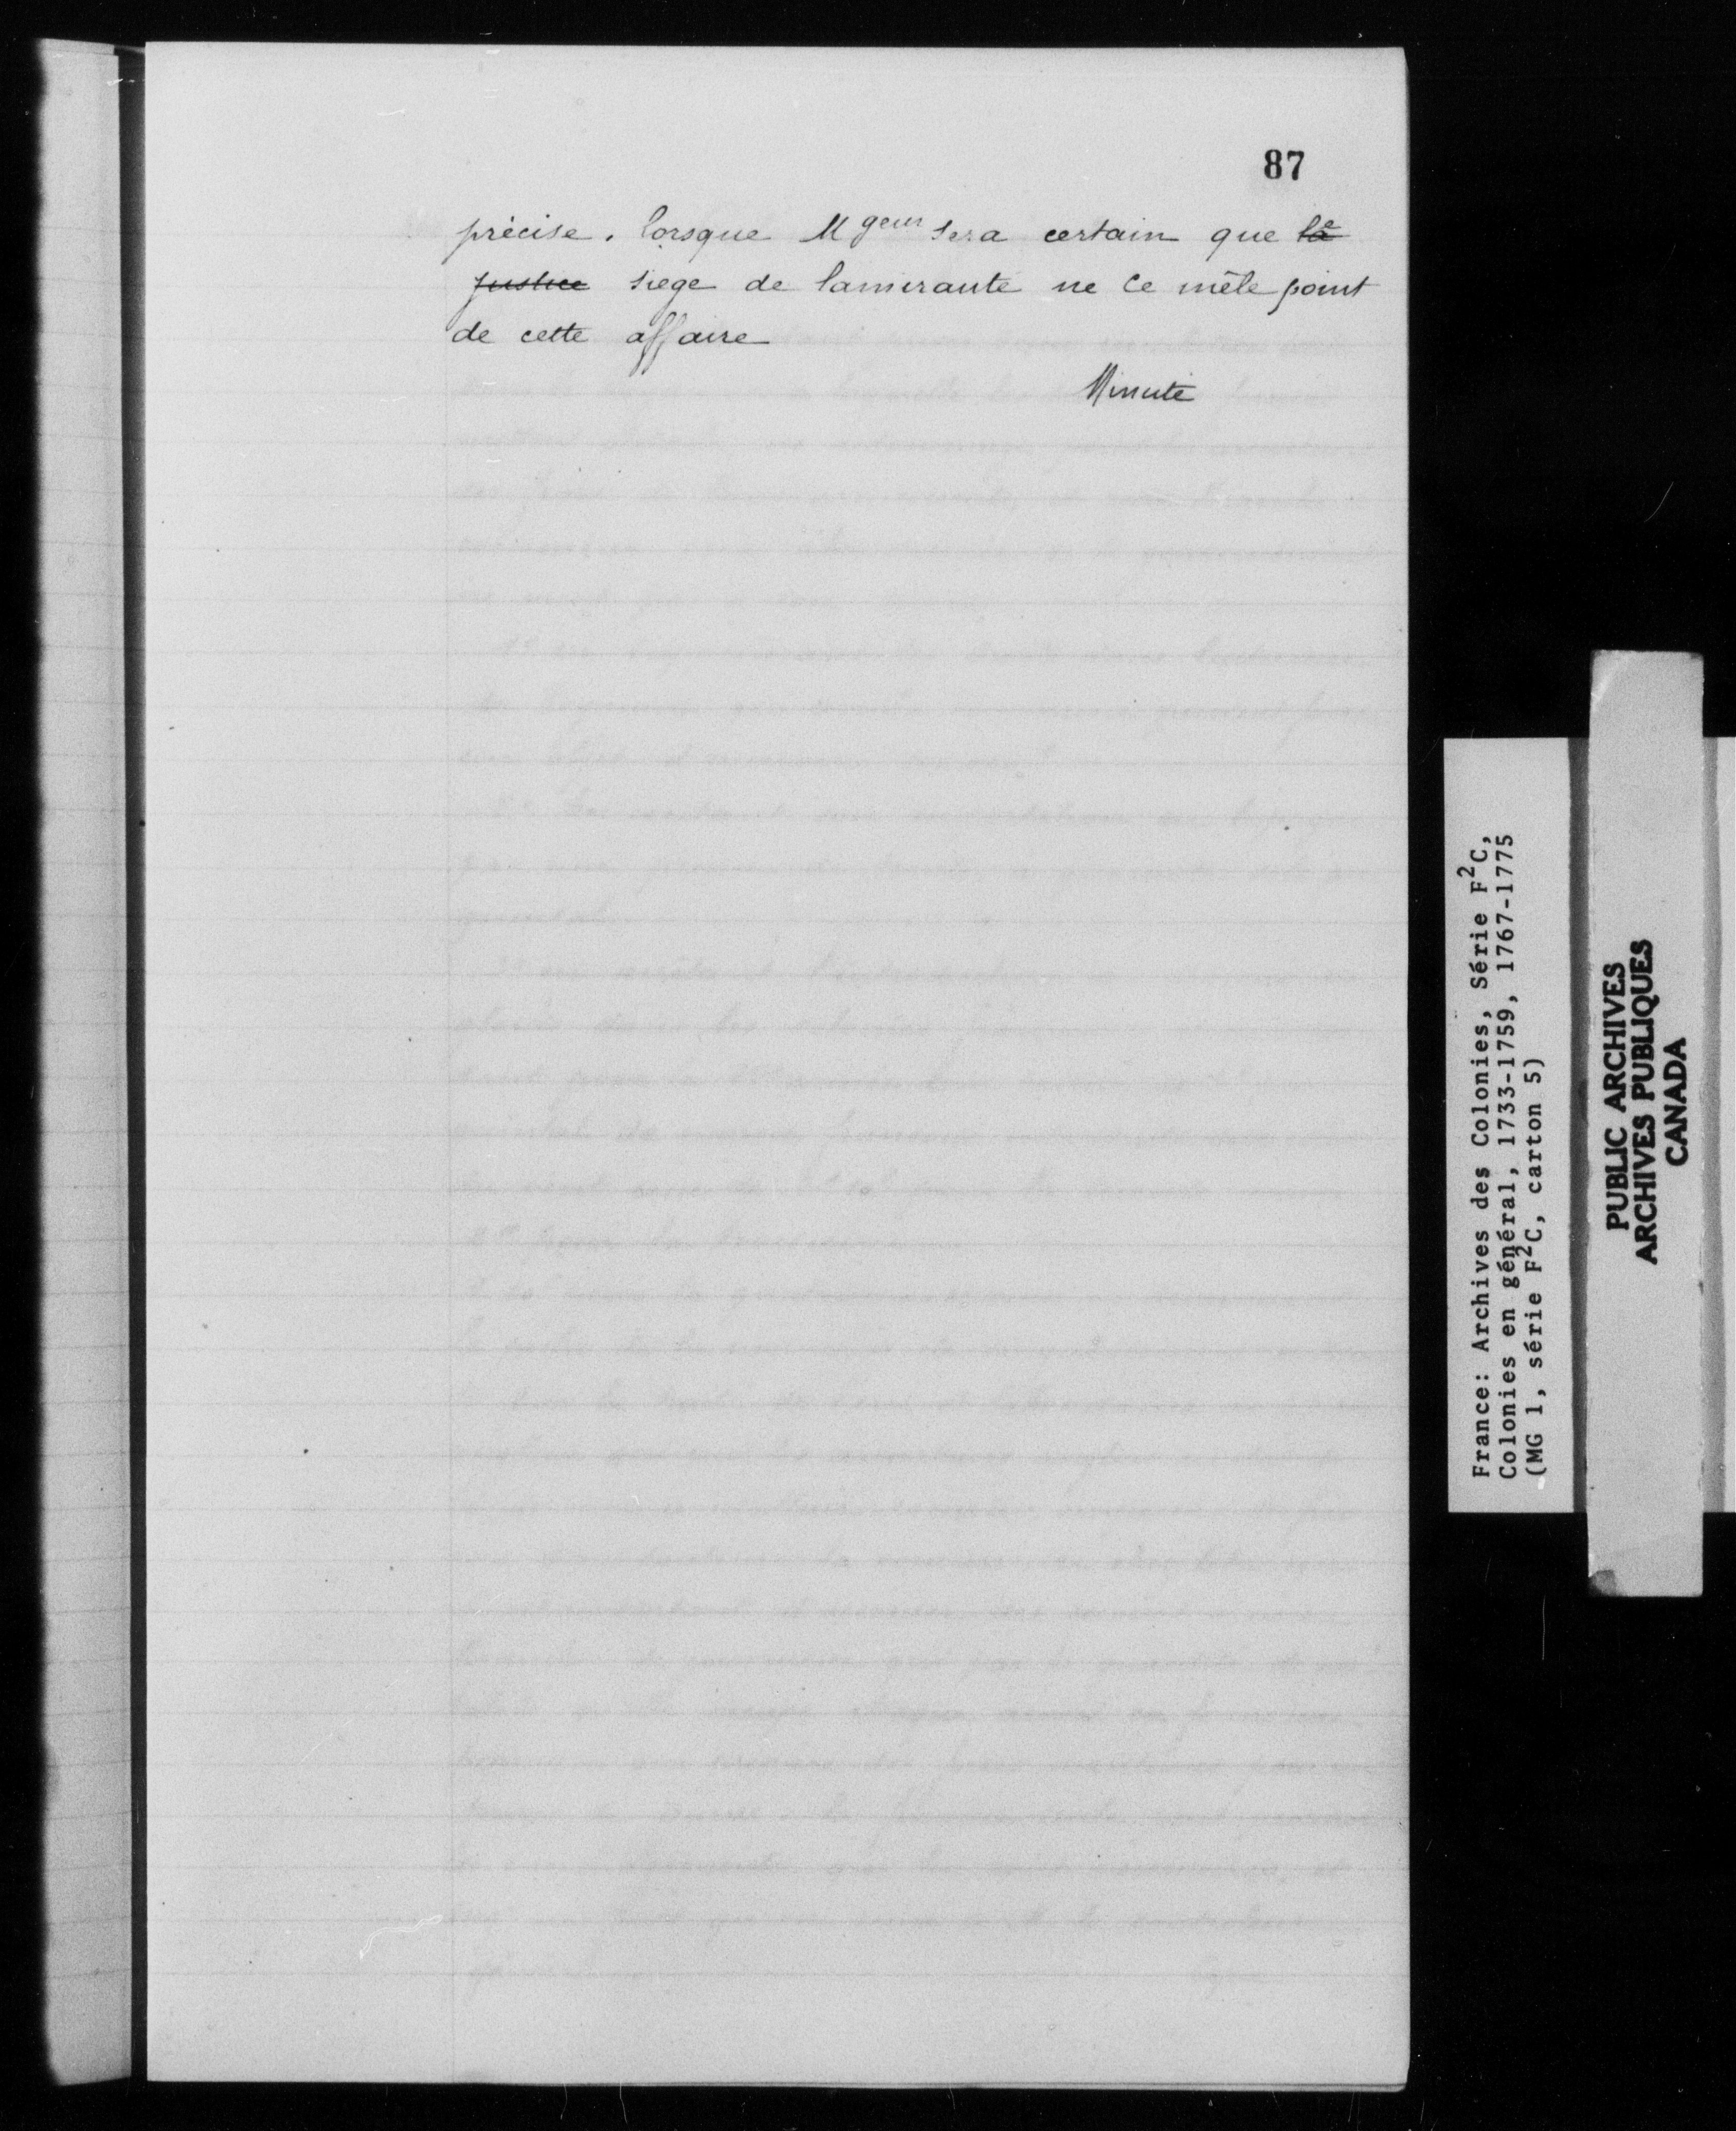 87
précise. lorsque Mgeur sera certain que la
justice siege de lamirauté ne ce mêle point
de cette affaire
Minute
France: Archives des Colonies, Série F2C,
Colonies en général, 1733-1759, 1767-1775
(MG 1, série F2C, carton 5)
PUBLIC ARCHIVES
ARCHIVES PUBLIQUES
CANADA